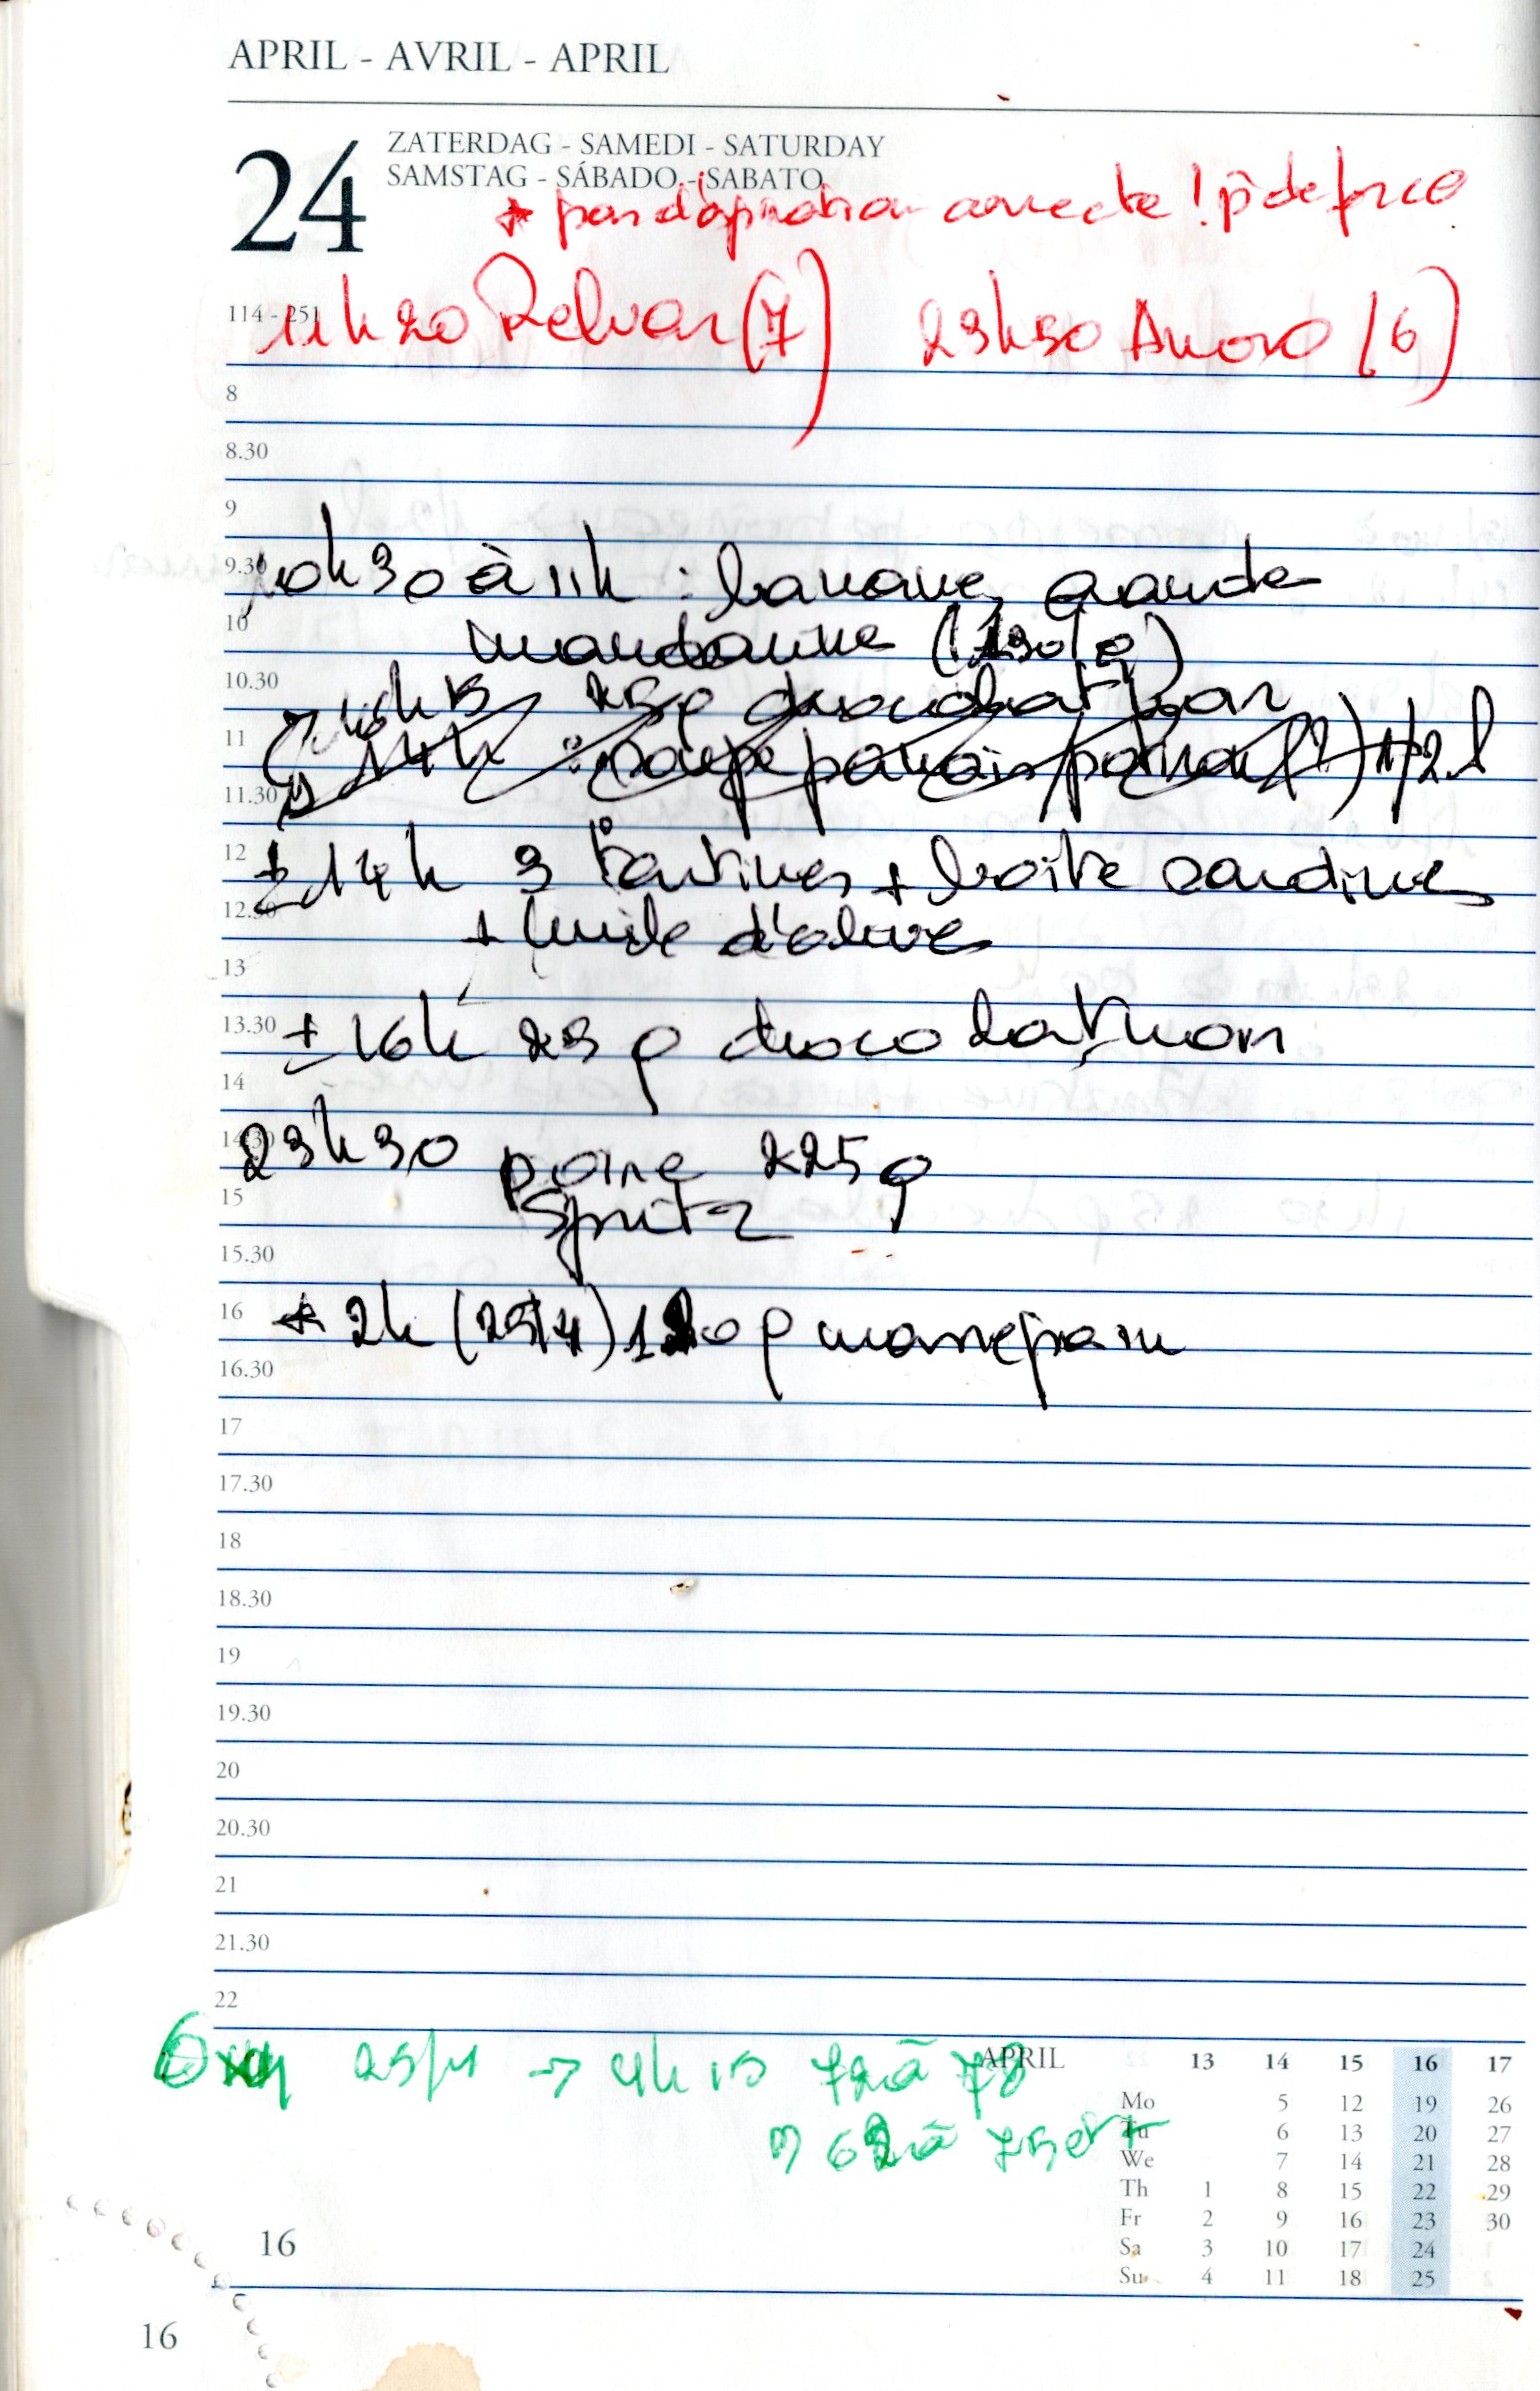 APRIL - AVRIL - APRIL
24
ZATERDAG - SAMEDI - SATURDAY
SAMSTAG - SÁBADO - SABATO
* pas d'aspiration correcte !
114 - 251
11h20 Relvar (7) 23h30 Anoro (6)
8
8.30
9
9.30
10h30 à 11h : banane, grande
10
mandarine (130 g)
10.30
25g chocolat noir
11
14h : soupe panais poireau (?) 1/2 l
11.30
12
± 14h 3 tartines + boîte sardines
12.30
+ huile d'olive
13
13.30
± 16h 25 g chocolat noir
14
14.30
23h30 poire 225 g
15
Spritz
15.30
16
* 2h (25/4) 120 g massepain
16.30
17
17.30
18
18.30
19
19.30
20
20.30
21
21.30
22
Oxy 25/4 → 4h15 72 à 78
APRIL 13 14 15 16 17
Mo 5 12 19 26
Tu 6 13 20 27
We 7 14 21 28
Th 1 8 15 22 29
Fr 2 9 16 23 30
Sa 3 10 17 24
Su 4 11 18 25
16
16